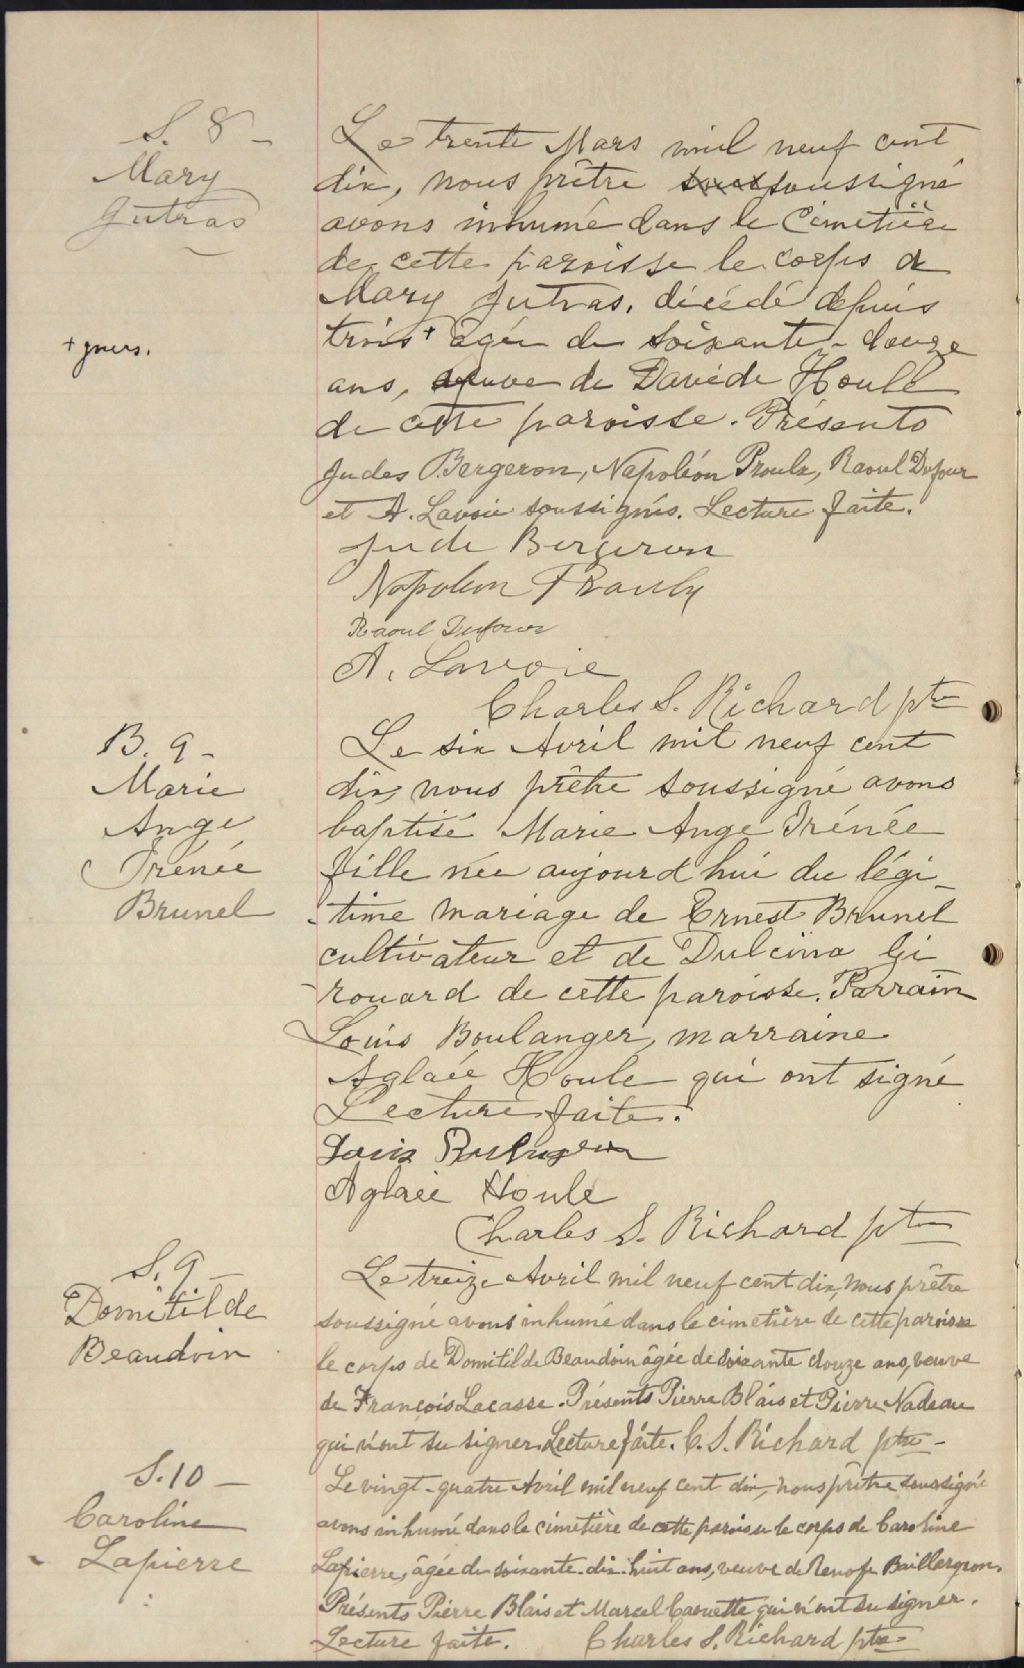 S. 8 -
Mary
Jutras
Le trente Mars mil neuf cent
dix, nous prêtre soussigné
avons inhumé dans le Cimetière
de cette paroisse le corps de
Mary Jutras, décédé depuis
trois + âgée de soixante-douze
+ jours.
ans, veuve de Davide Houle
de cette paroisse. Présents
Judes Bergeron, Napoléon Proulx, Raoul Dufour
et A. Lavoie soussignés. Lecture faite.
Jude Bergeron
Napoleon Proulx
Raoul Dufour
A. Lavoie
Charles S. Richard ptre
B. 9 -
Marie
Ange
Irénée
Brunel
Le six Avril mil neuf cent
dix, nous prêtre soussigné avons
baptisé Marie Ange Irénée
fille née aujourd'hui du légi-
-time mariage de Ernest Brunel
cultivateur et de Dulcina Gi
-rouard de cette paroisse. Parrain
Louis Boulanger, marraine
Aglaée Houle qui ont signé
Lecture faite.
Louis Boulanger
Aglaée Houle
Charles S. Richard ptre
S. 9 -
Domitilde
Beaudoin
Le treize Avril mil neuf cent dix, nous prêtre
soussigné avons inhumé dans le cimetière de cette paroisse
le corps de Domitilde Beaudoin âgée de soixante douze ans, veuve
de François Lacasse. Présents Pierre Blais et Pierre Nadeau
qui n'ont su signer. Lecture faite. C. S. Richard ptre -
S. 10 -
Caroline
Lapierre
Le vingt-quatre Avril mil neuf cent dix, nous prêtre soussigné
avons inhumé dans le cimetière de cette paroisse le corps de Caroline
Lapierre, âgée de soixante-dix-huit ans, veuve de Baillargeon.
Présents Pierre Blais et Marcel Caouette qui n'ont su signer.
Lecture faite. Charles S. Richard ptre